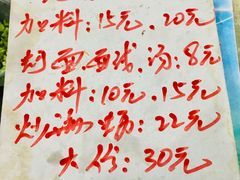 加料：15元、20元
扣面、面线汤：8元
加料：10元、15元
炒油粿：22元
大份：30元